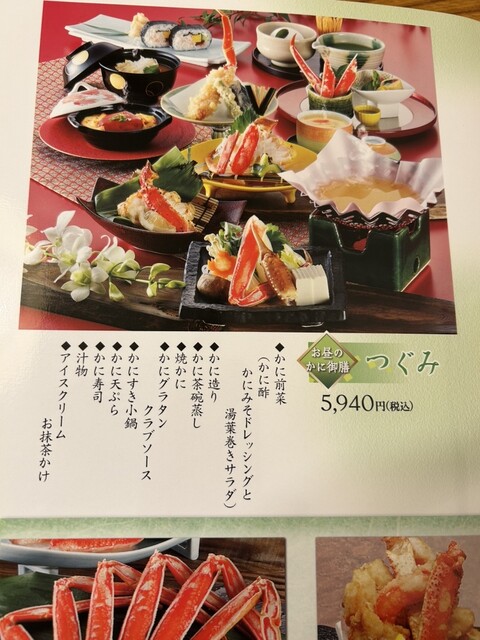 お昼の
かに御膳
つぐみ
5,940円(税込)
◆かに前菜
(かに酢
かにみそドレッシングと
湯葉巻きサラダ)
◆かに造り
◆かに茶碗蒸し
◆焼かに
◆かにグラタン
クラブソース
◆かにすき小鍋
◆かに天ぷら
◆かに寿司
◆汁物
◆アイスクリーム
お抹茶かけ